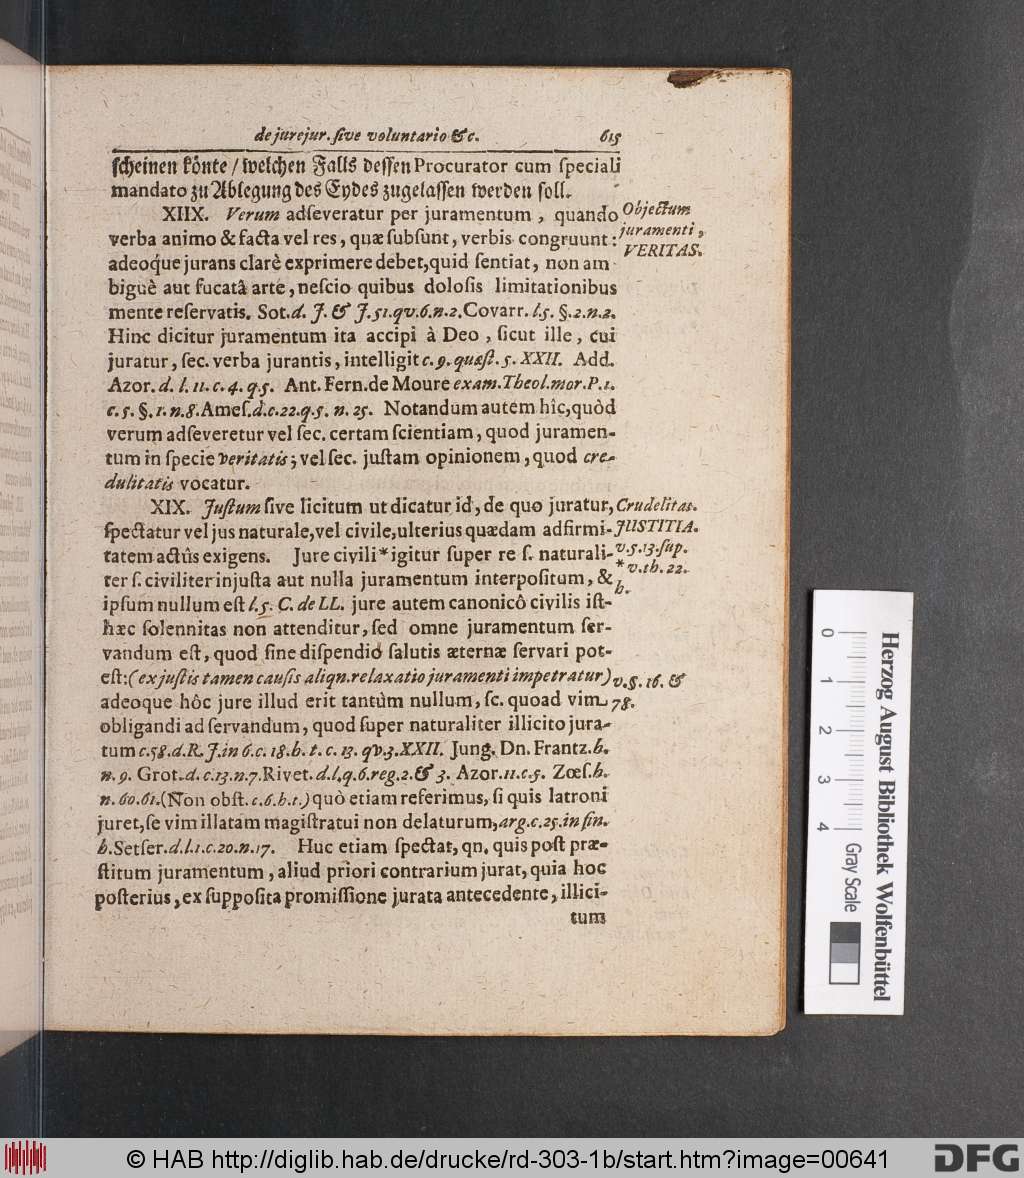 de jurejur. ſive voluntario &c. 615
ſcheinen kônte / welchen Falls deſſen Procurator cum ſpeciali
mandato zu Ablegung des Eydes zugelaſſen werden ſoll.
XIIX. Verum adſeveratur per juramentum, quando
verba animo & facta vel res, quæ ſubſunt, verbis congruunt:
adeoq́ue jurans clarè exprimere debet, quid ſentiat, non am
biguè aut fucatâ arte, neſcio quibus doloſis limitationibus
mente reſervatis. Sot. d. J. & J. 51. qv. 6. n. 2. Covarr. l. 5. §. 2. n. 2.
Hinc dicitur juramentum ita accipi à Deo, ſicut ille, cui
juratur, ſec. verba jurantis, intelligit c. 9. quæſt. 5. XXII. Add.
Azor. d. l. 11. c. 4. q. 5. Ant. Fern. de Moure exam. Theol. mor. P. 1.
c. 5. §. 1. n. 8. Ameſ. d. c. 22. q. 5. n. 25. Notandum autem hîc, quòd
verum adſeveretur vel ſec. certam ſcientiam, quod juramen-
tum in ſpecie veritatis; vel ſec. juſtam opinionem, quod cre-
dulitatis vocatur.
Objectum
juramenti,
VERITAS.
XIX. Juſtum ſive licitum ut dicatur id, de quo juratur,
ſpectatur vel jus naturale, vel civile, ulterius quædam adfirmi-
tatem actûs exigens. Jure civili * igitur ſuper re ſ. naturali-
ter ſ. civiliter injuſta aut nulla juramentum interpoſitum, &
ipſum nullum eſt l. 5. C. de LL. jure autem canonicô civilis iſt-
hæc ſolennitas non attenditur, ſed omne juramentum ſer-
vandum eſt, quod ſine diſpendio ſalutis æternæ ſervari pot-
eſt: (ex juſtis tamen cauſis aliqn. relaxatio juramenti impetratur)
adeoque hôc jure illud erit tantùm nullum, ſc. quoad vim
obligandi ad ſervandum, quod ſuper naturaliter illicito jura-
tum c. 58. d. R. J. in 6. c. 18. h. t. c. 13. qv. 3. XXII. Jung. Dn. Frantz. h.
n. 9. Grot. d. c. 13. n. 7. Rivet. d. l. q. 6. reg. 2. & 3. Azor. 11. c. 5. Zœſ. h.
n. 60. 61. (Non obſt. c. 6. h. t.) quò etiam referimus, ſi quis latroni
juret, ſe vim illatam magiſtratui non delaturum, arg. c. 25. in fin.
h. Setſer. d. l. 1. c. 20. n. 17. Huc etiam ſpectat, qn. quis poſt præ-
ſtitum juramentum, aliud priori contrarium jurat, quia hoc
poſterius, ex ſuppoſita promiſſione jurata antecedente, illici-
tum
Crudelitas.
JUSTITIA.
v. §. 13. ſup.
* v. th. 22.
h.
v. §. 16. &
78.
0 1 2 3 4
Gray Scale
Herzog August Bibliothek Wolfenbüttel
© HAB http://diglib.hab.de/drucke/rd-303-1b/start.htm?image=00641
DFG